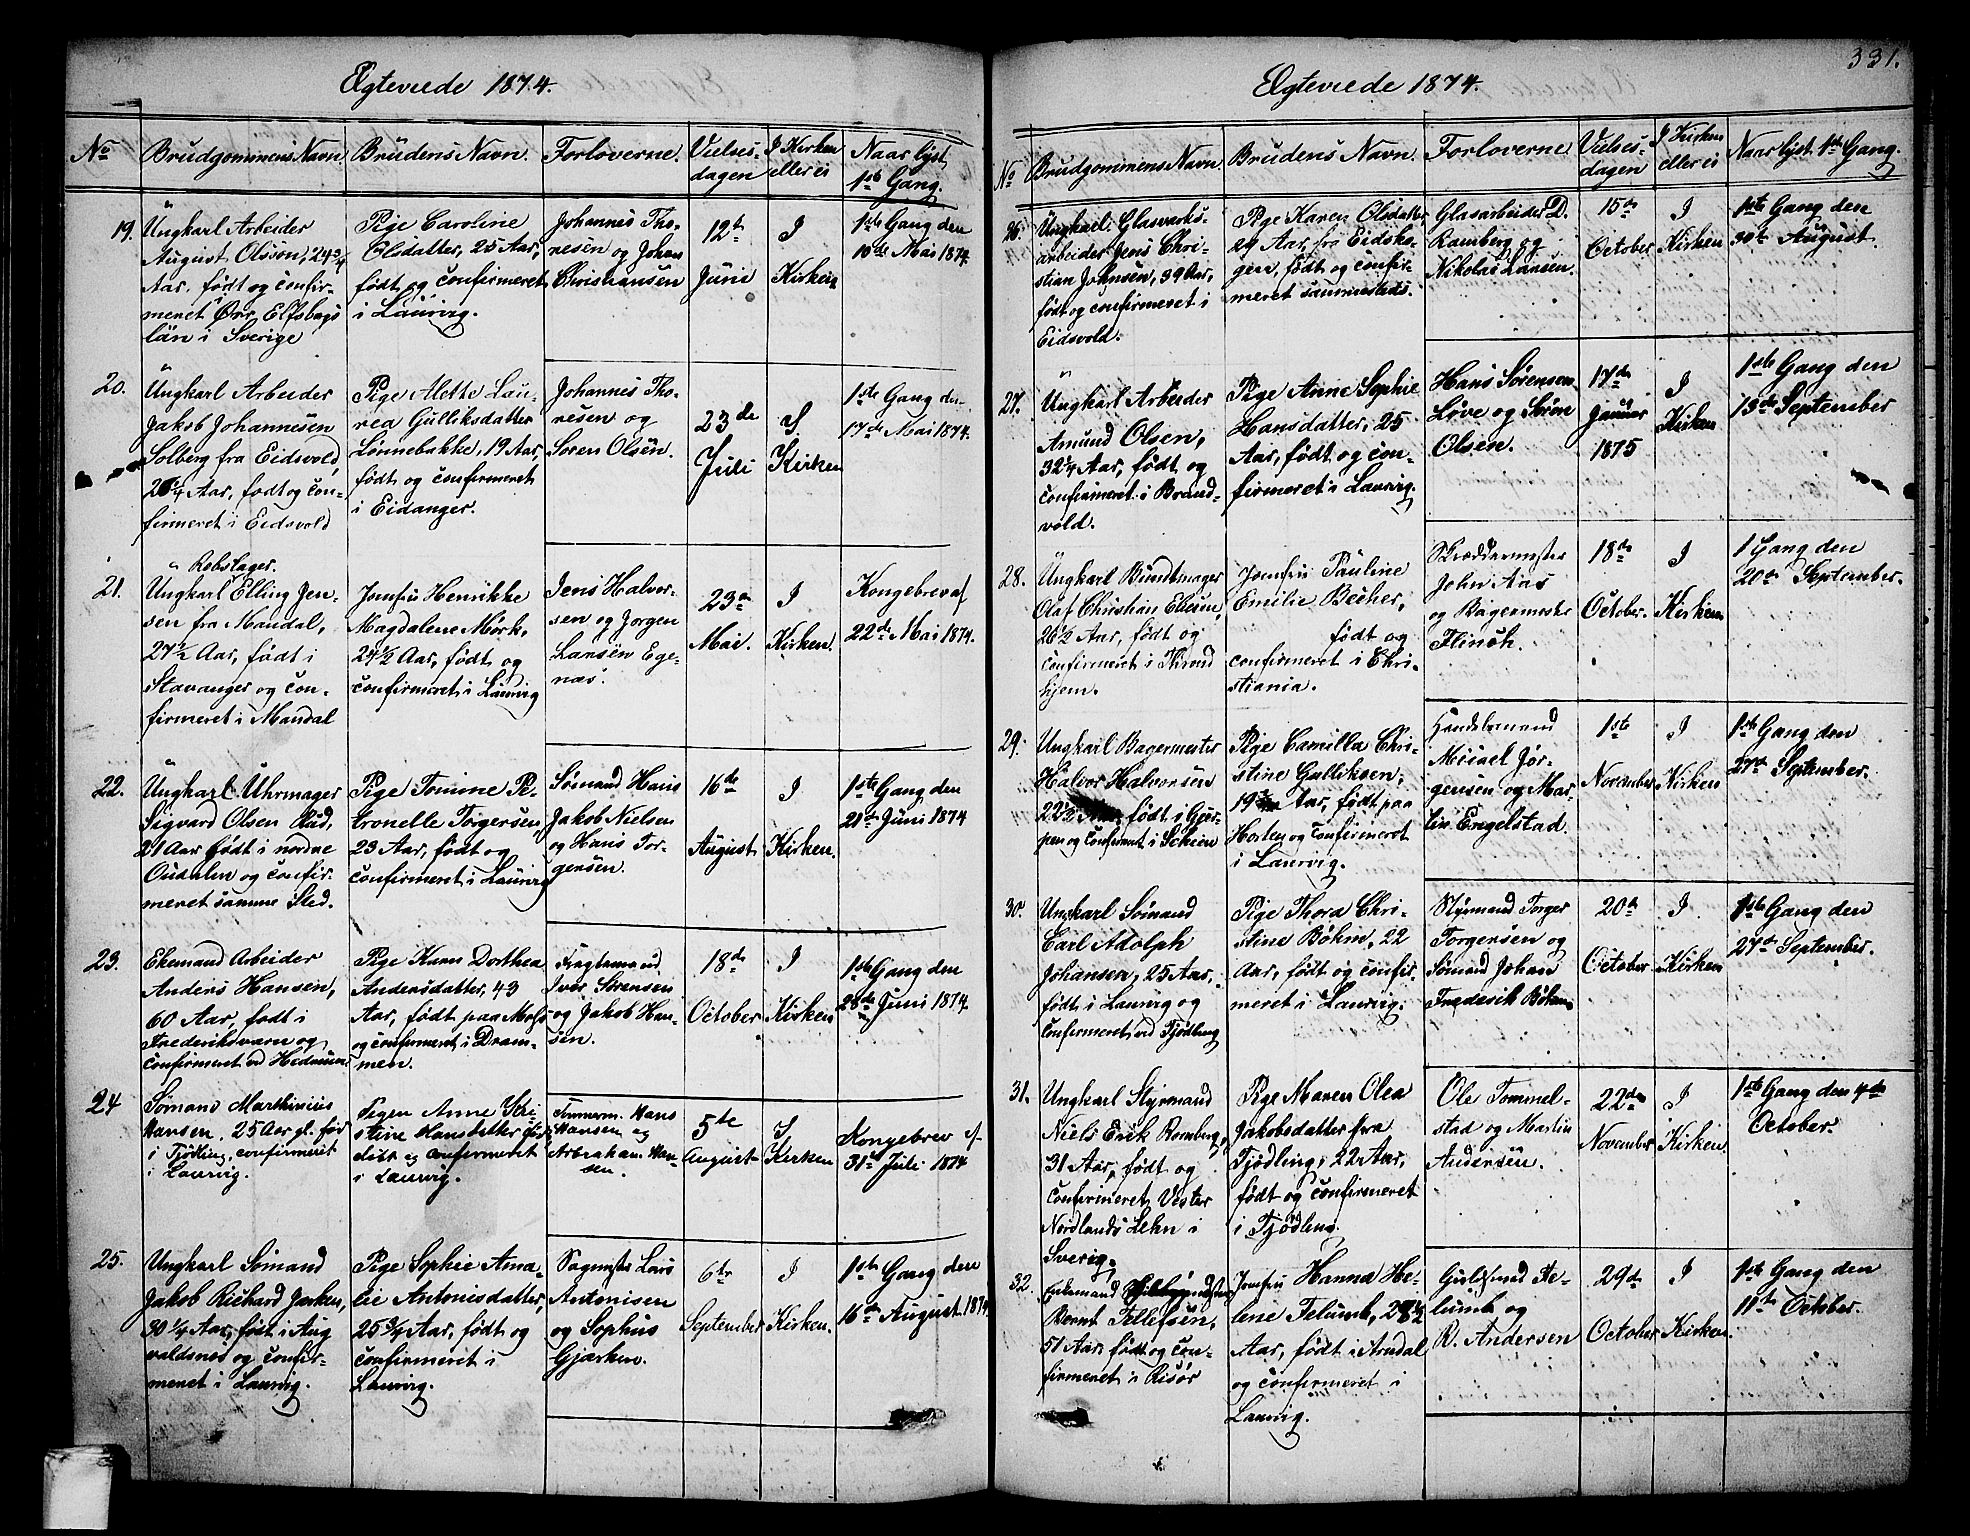 Ægteviede 1874.
No
Brudgommens Navn
Brudens Navn.
Forloverne.
Vielses-
dagen
I Kirken
eller ei
Naar lyst
1ste Gang.
19.
Ungkarl Arbeider
August Olsson, 24 3/4
Aar. født og confir-
meret Ørr Elfsbags
län i Sverige
Pige Caroline
Olsdatter, 25 Aar,
født og confirmeret
i Laurvig.
Johannes Tho-
resen og Johan
Christiansen
12te
Juni
I
Kirken
1ste Gang den
10de Mai 1874.
20.
Ungkarl Arbeider
Jakob Johannesen
Solberg fra Eidsvold,
26 1/4 Aar, født og con-
firmeret i Eidsvold
Pige Alette Lau-
rea Gulliksdatter
Lønnebakke, 19 Aar,
født og confirmeret
i Eidanger.
Johannes Tho-
resen og
Søren Olsen.
23de
Juli
I
Kirken
1ste Gang den
17de Mai 1874.
21.
Rebslager.
Ungkarl Elling Jen-
sen fra Mandal,
27 1/2 Aar, født i
Stavanger og con-
firmeret i Mandal
Jomfru Henrikke
Magdalene Mørk,
24 1/2 Aar, født og
confirmeret i Laurvig
Jens Halvor-
sen og Jørgen
Larsen Ege-
næs.
23de
Mai.
I
Kirken.
Kongebrev af
22de Mai 1874.
22.
Ungkarl Uhrmager
Sigvard Olsen Rud,
21 Aar født i nordre
Oudalen og confir-
meret samme Sted.
Pige Tomine Pe-
tronelle Torgersen,
23 Aar, født og
confirmeret i Laurvig
Sømand Hans
Jakob Nielsen
og Hans Tor-
gersen.
16de
August
I
Kirken.
1ste Gang den
21de Juni 1874
23.
Ekemand Arbeider
Anders Hansen,
60 Aar, født i
Frederiksværn og
confirmeret ved Hedrum
Pige Karen Dorthea
Andersdatter, 43
Aar, født paa Moss
og confirmeret i Dram-
men.
Fragtemand
Iver Sørensen
og Jakob Han-
sen.
18de
October
I
Kirken
1ste Gang den
28de Juni 1874.
24
Sømand Marthinius
Hansen, 25 Aar gl. født
i Tjølling, confirmeret
i Laurvig.
Pigen Anne Kri-
stine Hansdatter
født og confirmeret
i Laurvig.
Tømmerm. Hans
Hansen og
Abraham Han-
sen.
5te
August
I
Kirken
Kongebrev af
31te Juli 1874
25.
Ungkarl Sømand
Jakob Richard Jacken,
30 1/4 Aar, født i Aug
valdsnes og confir-
meret i Laurvig.
Pige Sophie Ama-
lie Antonisdatter,
25 3/4 Aar, født og
confirmeret i
Laurvig.
Sagmester Lars
Antonisen
og Sophus
Gjærken.
6te
September
I
Kirken.
1ste Gang den
16de August 1874
331.
Ægteviede 1874.
No
Brudgommens Navn.
Brudens Navn.
Forloverne
Vielses-
dagen
I Kirken
eller ei
Naar lyst 1ste Gang.
26.
Ungkarl Glasværks-
arbeider Jens Chri-
stian Johnsen, 39 Aar,
født og confirmeret i
Eidsvold.
Pige Karen Olsdatter,
29 Aar, fra Eidsko-
gen, født og confir-
meret sammesteds.
Glasarbeider D.
Ramberg og
Nikolai Larsen.
15de
October
I
Kirken
1ste Gang den
30te August.
27.
Ungkarl Arbeider
Amund Olsen,
32 1/4 Aar, født og
confirmeret i Brand-
vold.
Pige Anne Sophie
Hansdatter, 25
Aar, født og con-
firmeret i Laurvig.
Hans Sørensen
Løve og Søren
Olsen.
17de
Januar
1875
I
Kirken
1ste Gang den
13de September
28.
Ungkarl Buntmager
Olaf Christian Ebesen,
26 1/2 Aar, født og
confirmeret i Thrond
hjem.
Jomfru Pauline
Emilie Becher,
født og
confirmeret i Chri-
stiania.
Skræddermester
John Aas
og Bagermester
Flinsh.
18de
October.
I
Kirken
1 Gang den
20de September.
29.
Ungkarl Bagermester
Halvor Halvorsen
22 1/2 Aar født i Gjer-
pen og confirmeret i Schien
Pige Camilla Chri-
stine Gulliksen,
19 Aar, født paa
Horten og confirmeret
i Laurvig.
Handelsmand
Mikael Jør-
gensen og Mar-
tin Engelstad.
1ste
November
I
Kirken
1ste Gang den
27de September.
30.
Ungkarl Sømand
Carl Adolph
Johansen, 25 Aar,
født i Laurvig og
confirmeret ved Tjødling
Pige Thora Chri-
stine Bøhm, 22
Aar, født og confir-
meret i Laurvig.
Styrmand Torger
Torgersen og
Sømand Johan
Frederik Bøhm
20de
October
I
Kirken
1ste Gang den
27de September.
31.
Ungkarl Styrmand
Niels Erik Romberg,
31 Aar, født og
confirmeret Vester
Nordlands Lehn i
Sverig.
Pige Maren Olea
Jakobsdatter fra
Tjødling, 22 Aar,
født og confirmeret
i Tjødling.
Ole Tommel-
stad og Martin
Andersen.
22de
November
I
Kirken.
1ste Gang den 4de
October.
32.
Enkemand
Bernt Tellefsen,
51 Aar, født og con-
firmeret i Risør
Jomfru Hanna He-
lene Felumb, 28 1/2
Aar, født i Arndal
og confirmeret i
Laurvig.
Guldsmed Fe-
lumb og
R. Andersen
29de
October
I
Kirken.
1ste Gang den
11te October.